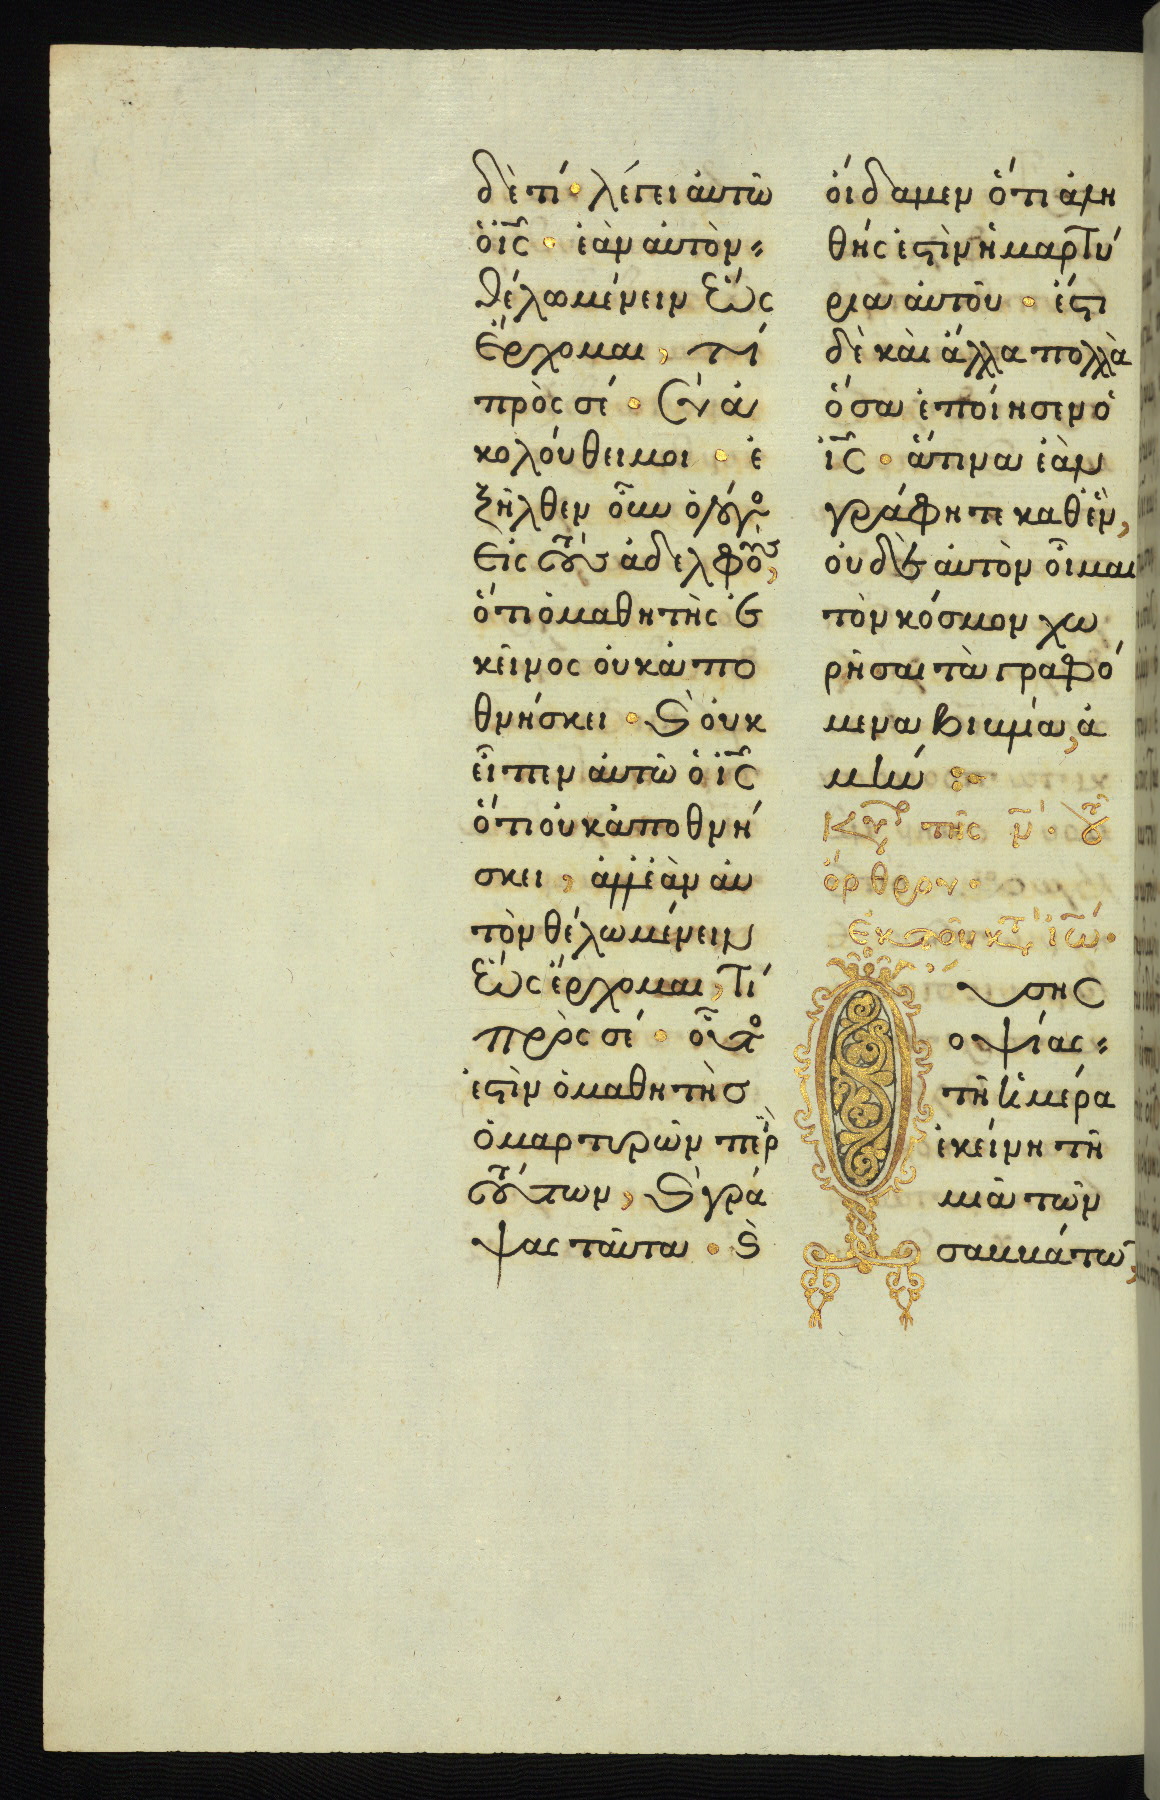 δὲ τί · λέγει ἀυτῶ
ὁ ἰ̅ς̅ · ἐὰν ἀυτὸν
θέλω μένειν ἕως
ἔρχομαι, τί
πρὸς σέ · σὺ ἀ
κολούθει μοι · ἐ
ξῆλθεν οὖν ὁ λόγος
εἰς τοὺς ἀδελφοὺς,
ὅτι ὁ μαθητὴς ἐ
κεῖνος οὐκ ἀπο
θνήσκει · ϗ οὐκ
εἶπεν ἀυτῶ ὁ ἰ̅ς̅
ὅτι οὐκ ἀποθνή
σκει, ἀλλ' ἐὰν ἀυ
τὸν θέλω μένειν
ἕως ἔρχομαι, τί
πρὸς σέ · οὗτος
ἐστὶν ὁ μαθητὴς
ὁ μαρτυρῶν περὶ
τούτων, ϗ γρά
ψας ταῦτα · ϗ
οἴδαμεν ὅτι ἀλη
θής ἐστὶν ἡ μαρτυ
ρία ἀυτοῦ · ἔστι
δὲ καὶ ἄλλα πολλὰ
ὅσα ἐποίησεν ὁ
ἰ̅ς̅ · ἅτινα ἐὰν
γράφηται καθ' ἓν,
οὐδὲ ἀυτὸν οἶμαι
τὸν κόσμον χω
ρῆσαι τὰ γραφό
μενα βιβλία, ἀ
μήν :
Κυρ τῆς ν̅ · τοῦ
ὄρθρου ·
ἐκ τοῦ κτ ἰω ·
Οὔσης
ὀψίας
τῇ ἡμέρα
ἐκείνη τῆ
μιᾶ τῶν
σαββάτω̅,